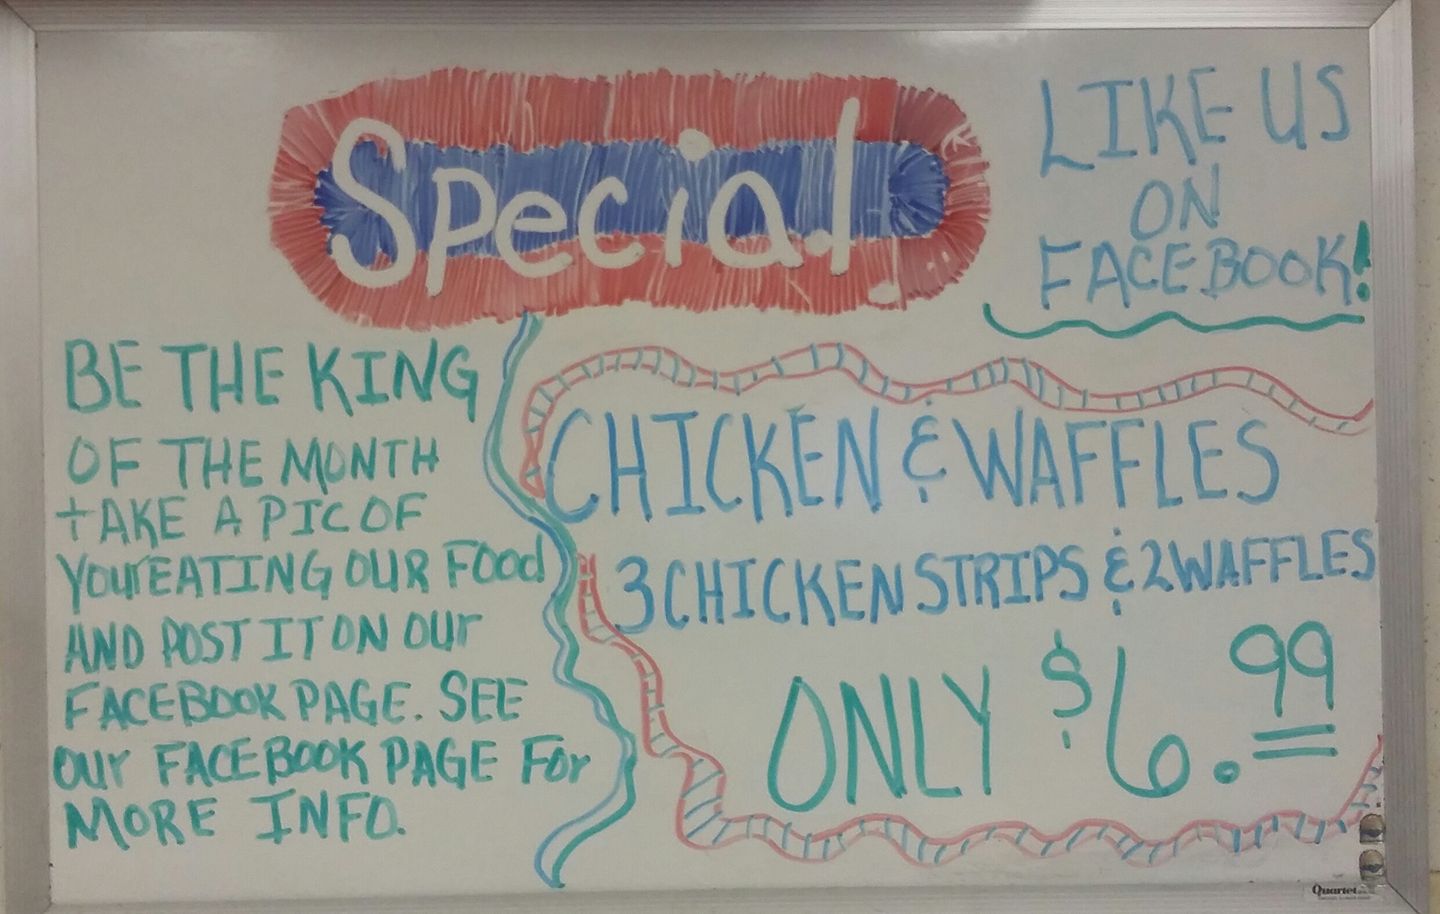 Special
LIKE US
ON
FACEBOOK!
BE THE KING
OF THE MONTH
TAKE A PIC OF
YOUr EATING OUR FOOD
AND POST IT ON OUr
FACEBOOK PAGE. SEE
OUr FACEBOOK PAGE For
MORE INFO.
CHICKEN & WAFFLES
3 CHICKEN STRIPS & 2 WAFFLES
ONLY $6.99
Quartet